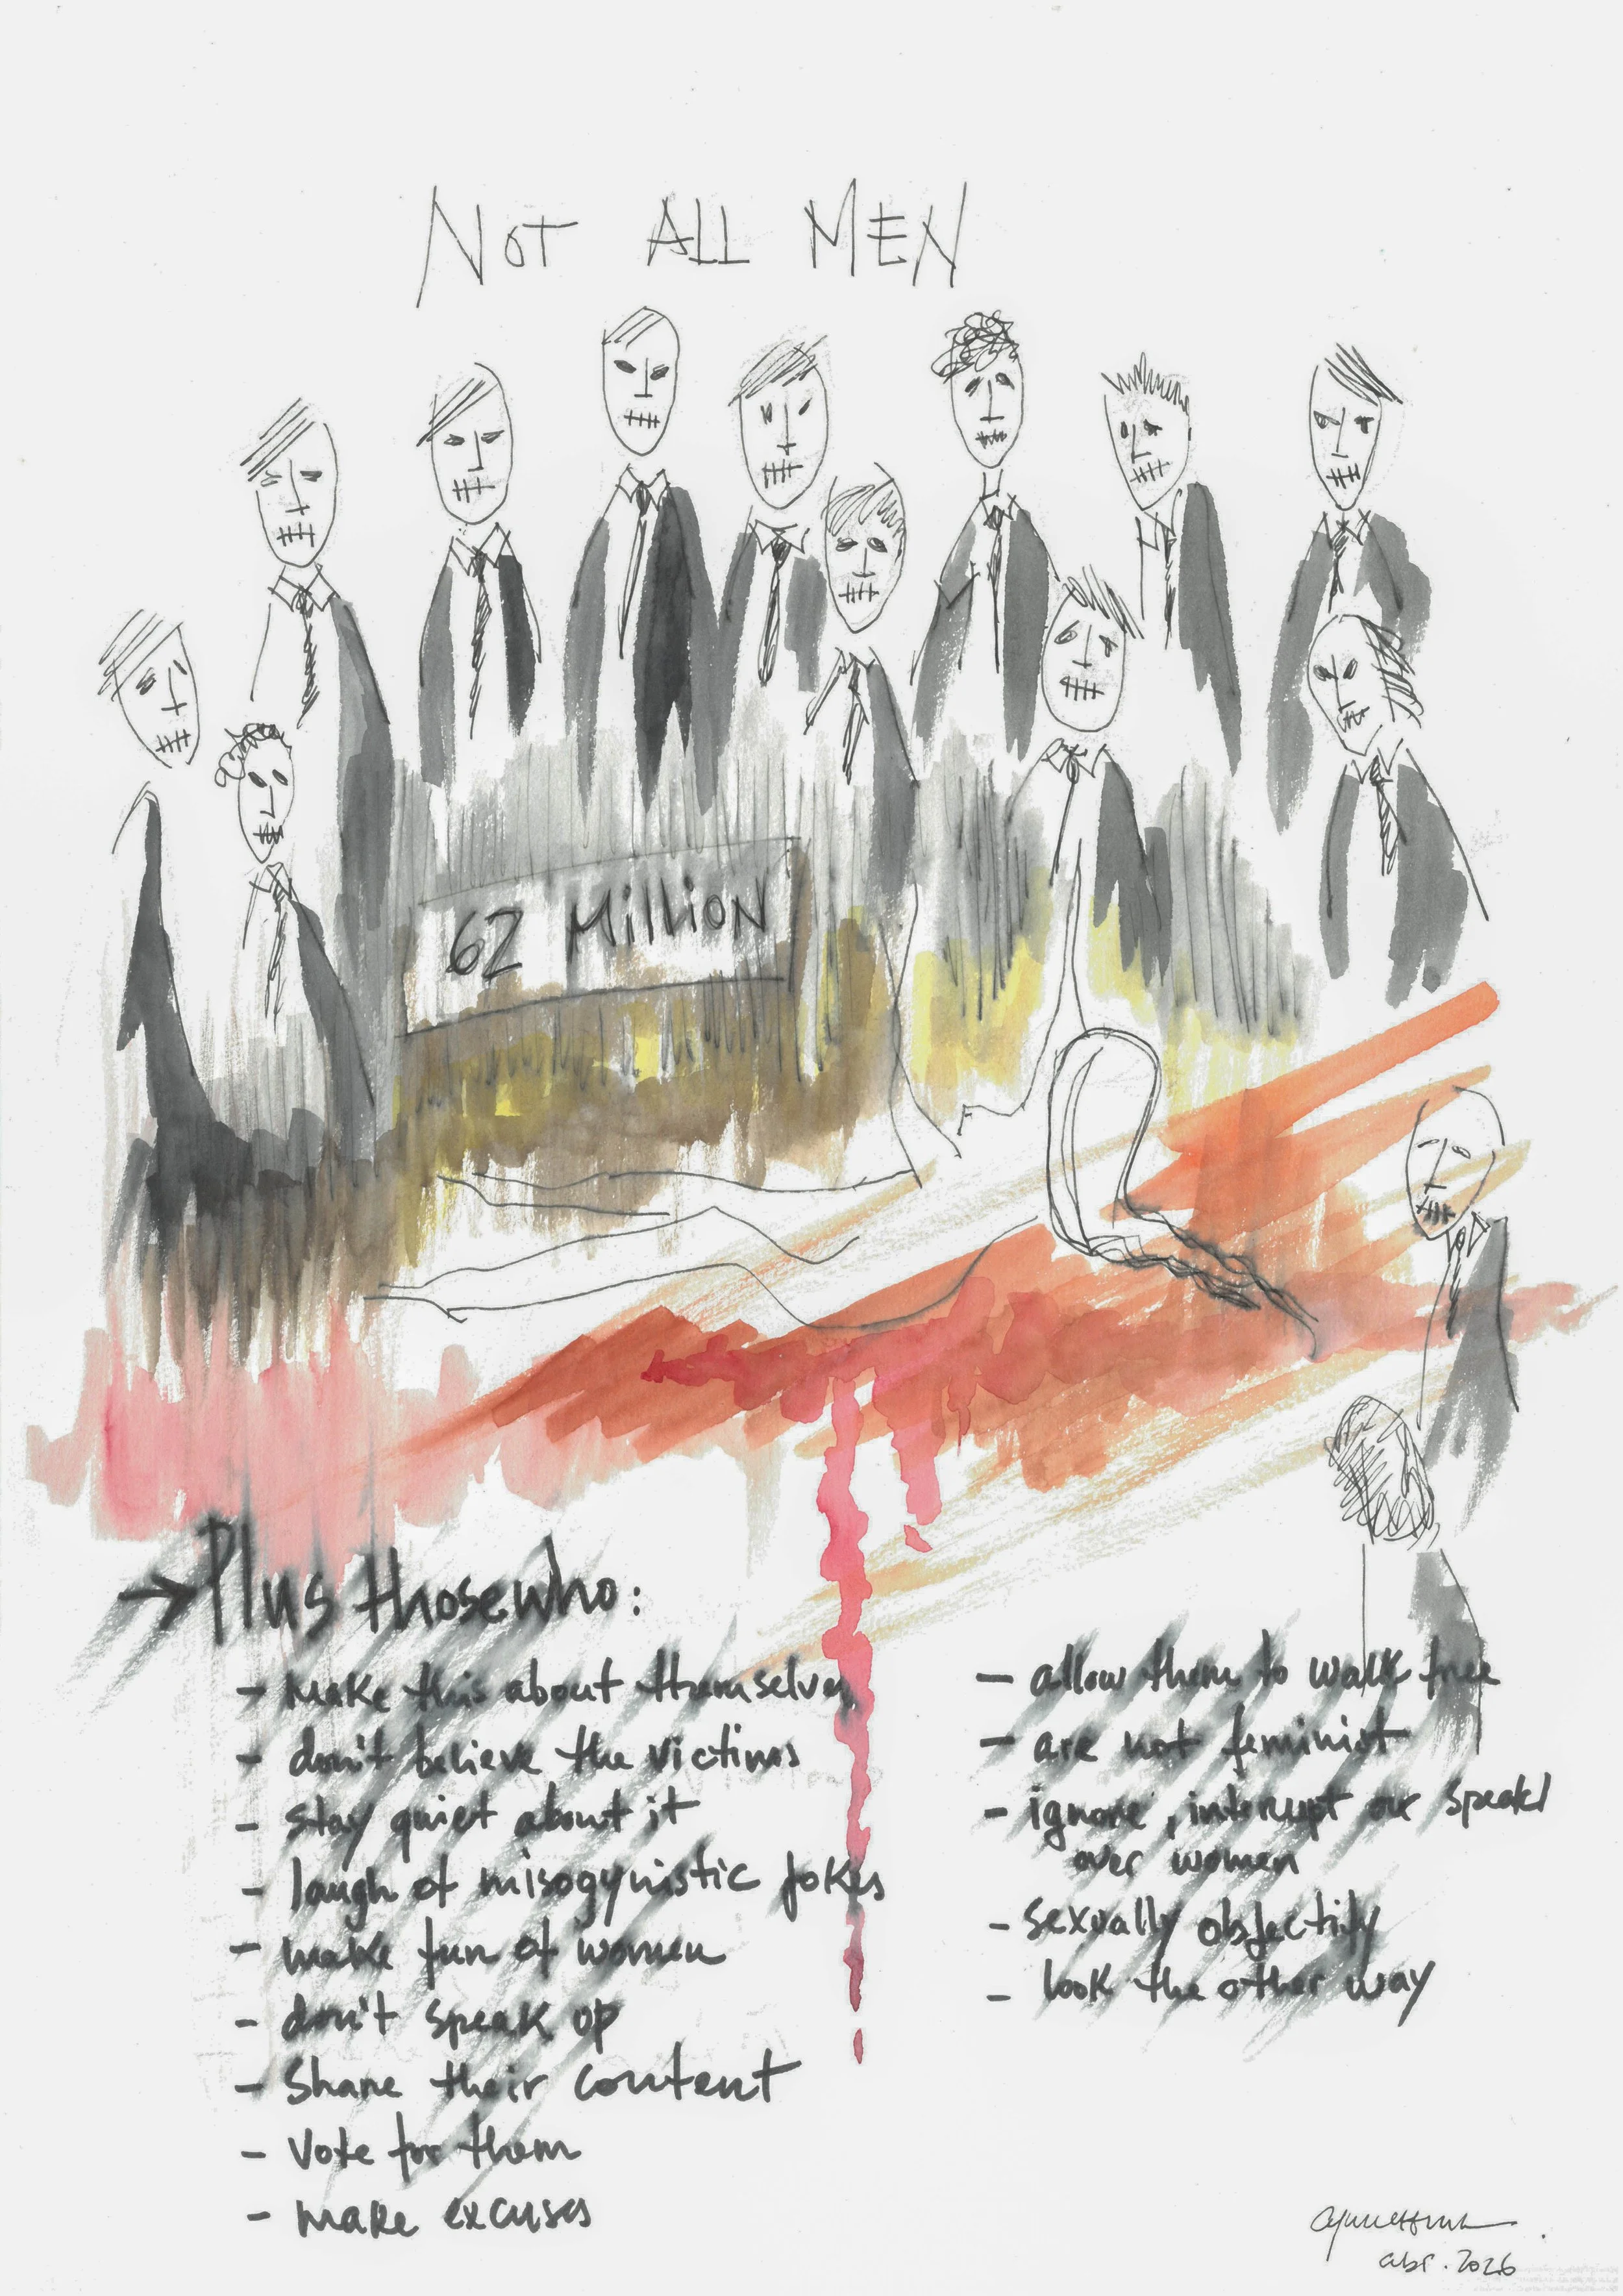 NOT ALL MEN
62 MilliON
→ Plus those who:
- Make this about themselves
- don't believe the victims
- stay quiet about it
- laugh of misogynistic jokes
- make fun of women
- don't speak up
- Share their content
- Vote for them
- make excuses
- allow them to walk free
- are not feminist
- ignore, interrupt or speak
over women
- sexually objectify
- look the other way
abr. 2026